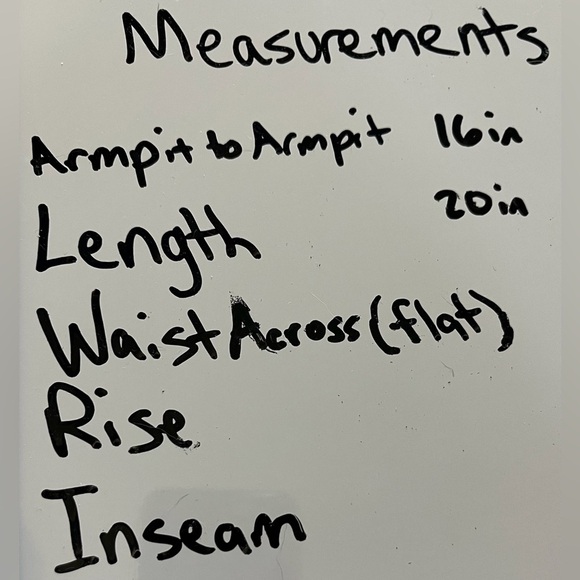 Measurements
Armpit to Armpit 16in
Length 20in
Waist Across (flat)
Rise
Inseam